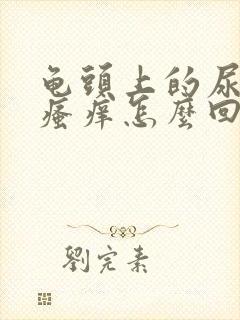 龟頭上的尿
瘙痒怎麽回
劉完素